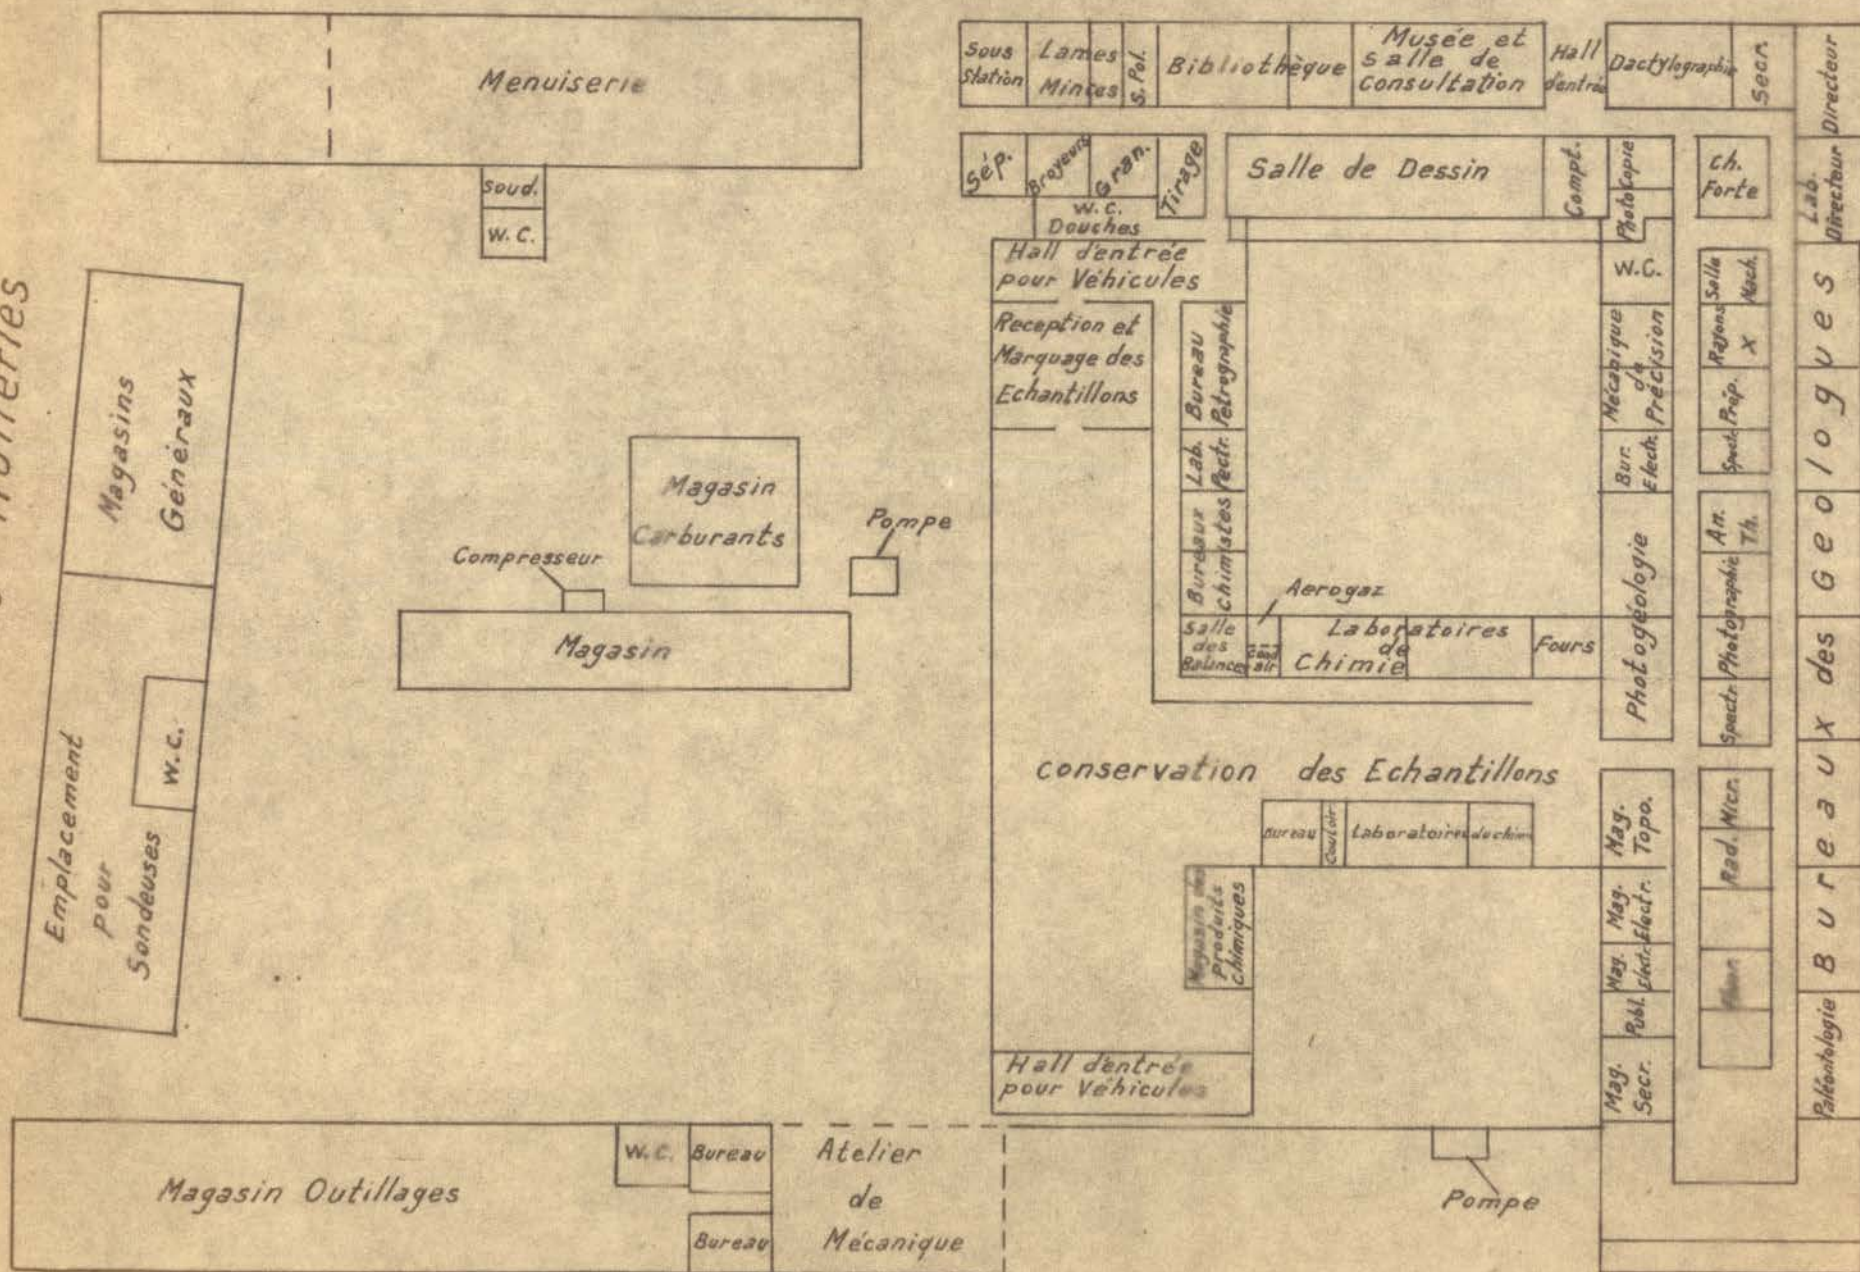 Menuiserie
Soud.
W.C.
Magasins
Généraux
Emplacement
pour
Sondeuses
W.C.
Magasin
Carburants
Pompe
Compresseur
Magasin
Magasin Outillages
W.C.
Bureau
Bureau
Atelier
de
Mécanique
Sous
Station
Lames
Minces
S. Pol.
Bibliothèque
Musée et
Salle de
Consultation
Hall
d'entrée
Dactylographie
Secr.
Directeur
Sép.
Broyeurs
Gran.
Tirage
W.C.
Douches
Salle de Dessin
Compt.
Photocopie
Ch.
Forte
Lab.
Directeur
Hall d'entrée
pour Véhicules
Reception et
Marquage des
Echantillons
Bureau
Petrographie
Lab.
Pectr.
Bureaux
Chimistes
Salle
des
Balances
Cond
air
Aerogaz
Laboratoires
de
Chimie
Fours
W.C.
Mécanique
de
Précision
Bur.
Electr.
Photogéologie
Salle
Mach.
Rayons
X
Prép.
Spectr.
An.
Th.
Photographie
Spectr.
Bureaux des Geologues
conservation des Echantillons
Bureau
Couloir
Laboratoires
de chimie
Magasin des
Produits
Chimiques
Hall d'entrée
pour Véhicules
Mag.
Topo.
Mag.
Electr.
Mag.
Electr.
Publ.
Mag.
Secr.
Micr.
Rad.
Paléontologie
Pompe